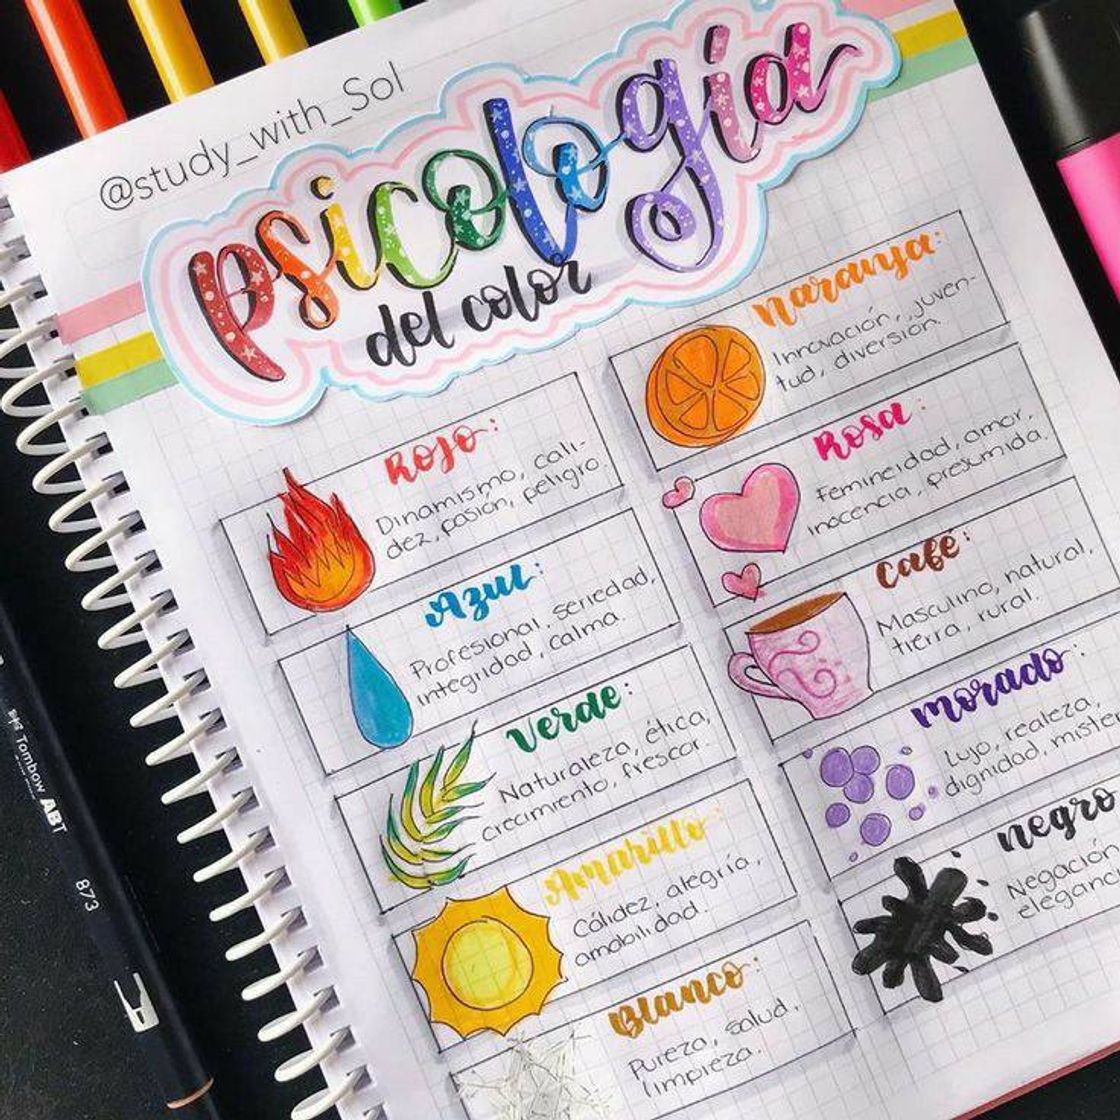 @study_with_Sol
psicología
del color
Rojo:
Dinamismo, cali-
dez, pasión, peligro.
Azul:
Profesional, seriedad,
integridad, calma.
Verde:
Naturaleza, ética,
crecimiento, frescor.
Amarillo:
Cálidez, alegría,
amabilidad.
Blanco:
Pureza, salud,
limpieza.
Naranja:
Innovación, juven-
tud, diversión.
Rosa:
Femineidad, amor,
inocencia, presumida.
Café:
Masculino, natural,
tierra, rural.
Morado:
Lujo, realeza,
dignidad, miste
negro
Negación
eleganc
Tombow ABT
873